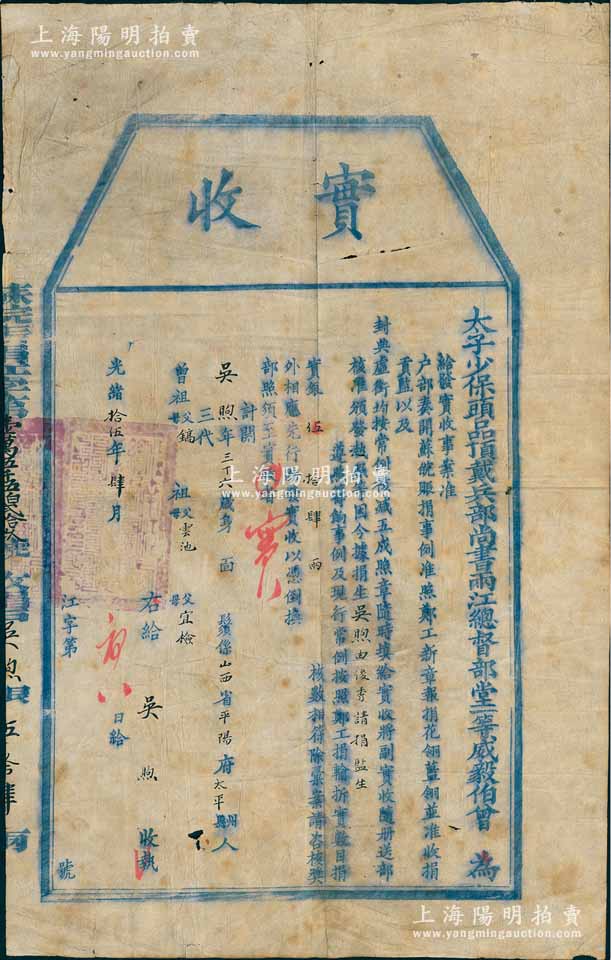 上海陽明拍賣
www.yangmingauction.com
實收
太子少保頭品頂戴兵部尚書兩江總督部堂一等威毅伯曾 為
給發實收事案准
户部奏開蘇皖賑捐事例准照鄭工新章報捐花翎藍翎並准收捐
貢監以及
封典虛銜均按常例
減五成照章隨時填給實收將副實收隨册送部
核准頒發
因今據捐生吳煦由俊秀請捐監生
遵
事例及現行常例按照鄭工捐輸折實數目捐
實銀伍拾肆兩
核數相符除彙案請咨核獎
外相應先行
實收以憑倒換
部照須至實
計開
吳煦年三十六歲身 面 鬚係山西省平陽府太平縣人
三代
曾祖父鎬 祖父雲池 父宜檢
母 母 母
右給 吳煦 收執
光緒拾伍年肆月
初八
日給
江字第
號
上海陽明拍賣
www.yangmingauction.com